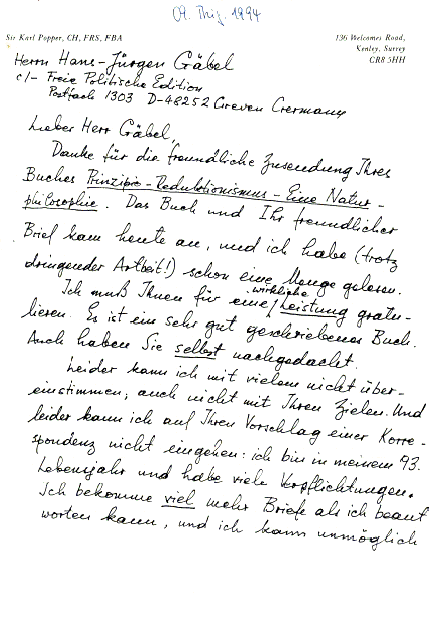 1994
Sir Karl Popper, CH, FRS, FBA
136 Welcomes Road,
Kenley, Surrey
CR8 5HH
Herrn Hans-Jürgen Gäbel
c/- Freie Politische Edition
Postfach 1303 D-48252 Greven Germany
Lieber Herr Gäbel,
Danke für die freundliche Zusendung Ihres
Buches Prinzipio-Reduktionismus-Eine Natur-
philosophie. Das Buch und Ihr freundlicher
Brief kam heute an, und ich habe (trotz
dringender Arbeit!) schon eine Menge gelesen.
Ich muß Ihnen für eine wirkliche Leistung gratu-
lieren. Es ist ein sehr gut geschriebenes Buch.
Auch haben Sie selbst nachgedacht.
Leider kann ich mit vielem nicht über-
einstimmen; auch nicht mit Ihren Zielen. Und
leider kann ich auf Ihren Vorschlag einer Korre-
spondenz nicht eingehen: ich bin in meinem 93.
Lebensjahr und habe viele Verpflichtungen.
Ich bekomme viel mehr Briefe als ich beant
worten kann, und ich kann unmöglich